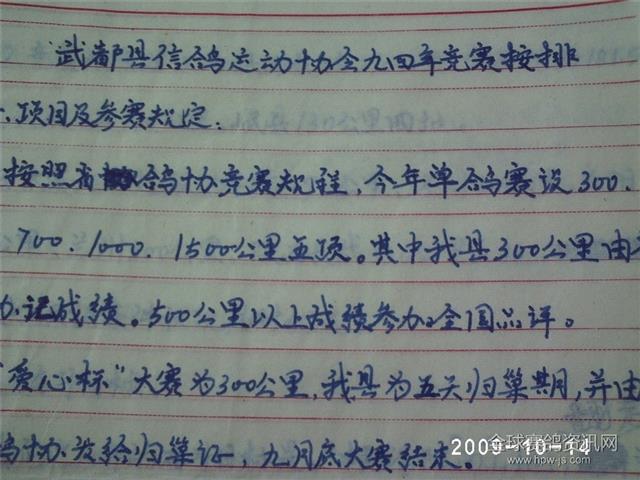 武都县信鸽运动协会九四年竞赛按排
、项目及参赛规定：
按照省鸽协竞赛规程，今年单鸽赛设300.
700.1000.1500公里五项。其中我县300公里由
办记成绩。500公里以上成绩参加全国品评。
"爱心杯"大赛为300公里，我县为五天归巢期，并由
鸽协发给归巢证，九月底大赛结束。
2009-10-14
全球赛鸽资讯网
www.hpw-js.com